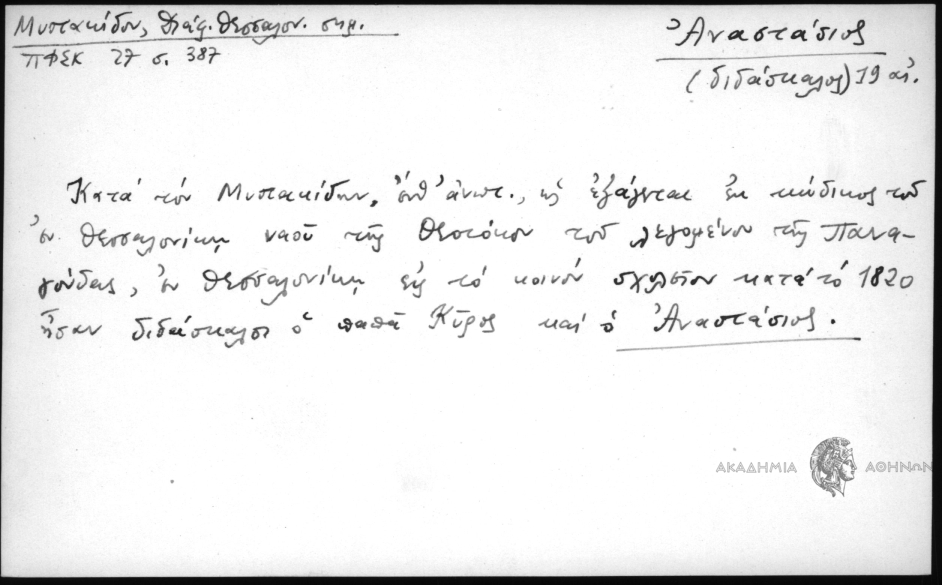 Μυστακίδου, Διάφ. Θεσσαλον. σημ.
ΠΦΣΚ 27 σ. 387
Ἀναστάσιος
(διδάσκαλος) 19 αἰ.
Κατὰ τὸν Μυστακίδην, ἔνθ' ἀνωτ., ὡς ἐξάγεται ἐκ κώδικος τοῦ
ἐν Θεσσαλονίκῃ ναοῦ τῆς Θεοτόκου τοῦ λεγομένου τῆς Πανα-
γούδας, ἐν Θεσσαλονίκῃ εἰς τὸ κοινὸν σχολεῖον κατὰ τὸ 1820
ἦσαν διδάσκαλοι ὁ παπᾶ Κῦρος καὶ ὁ Ἀναστάσιος.
ΑΚΑΔΗΜΙΑ ΑΘΗΝΩΝ